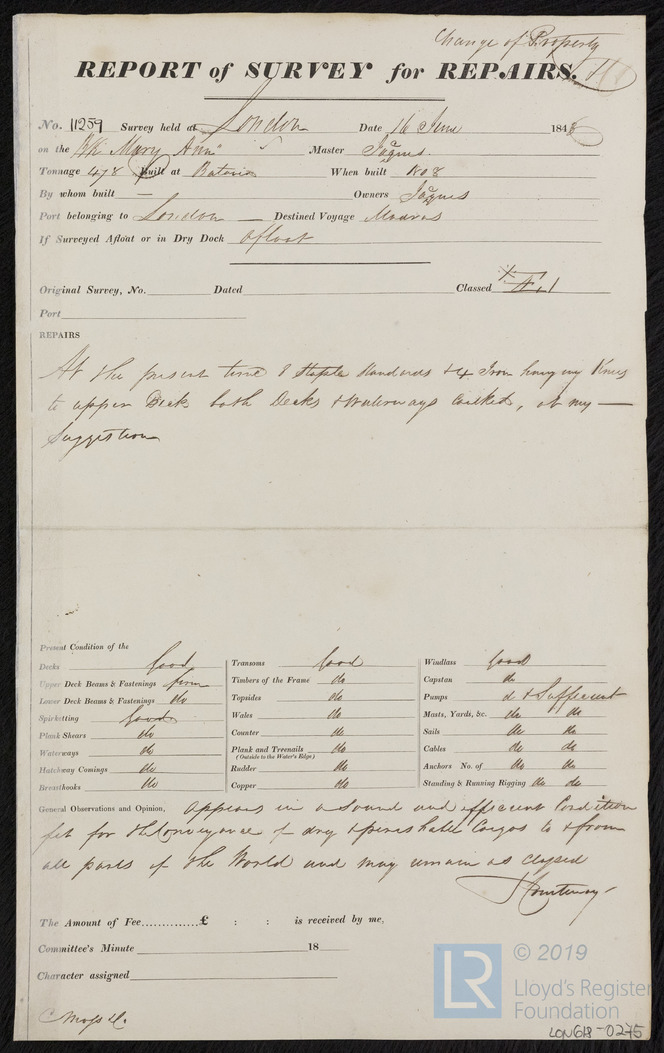 Change of Property
REPORT of SURVEY for REPAIRS.
No. 11259 Survey held at London Date 16 June 1848
on the Bk "Mary Ann" Master Jaques.
Tonnage 478 Built at Batavia When built 1808
By whom built — Owners Jaques
Port belonging to London — Destined Voyage Madras
If Surveyed Afloat or in Dry Dock afloat
Original Survey, No. Dated Classed Æ 1
Port
REPAIRS
At the present time 8 Staple Standards & 4 Iron hanging Knees
to upper Deck both Decks & Waterways Caulked, at my —
Suggestion
Present Condition of the
Decks Good Transoms Good Windlass Good
Upper Deck Beams & Fastenings firm Timbers of the Frame do Capstan do
Lower Deck Beams & Fastenings do Topsides do Pumps do & Sufficient
Spirketting Good Wales do Masts, Yards, &c. do do
Plank Shears do Counter do Sails do do
Waterways do Plank and Treenails do Cables do do
(Outside to the Water's Edge)
Hatchway Comings do Rudder do Anchors No. of do do
Breasthooks do Copper do Standing & Running Rigging do do
General Observations and Opinion, appears in a sound and efficient Condition
fit for the Conveyance of dry & perishable Cargos to & from
all parts of the World and may remain as classed
J Courtenay
The Amount of Fee..............£ : : is received by me,
Committee's Minute 18
Character assigned
© 2019
LR Lloyd's Register
Foundation
LON618-0275